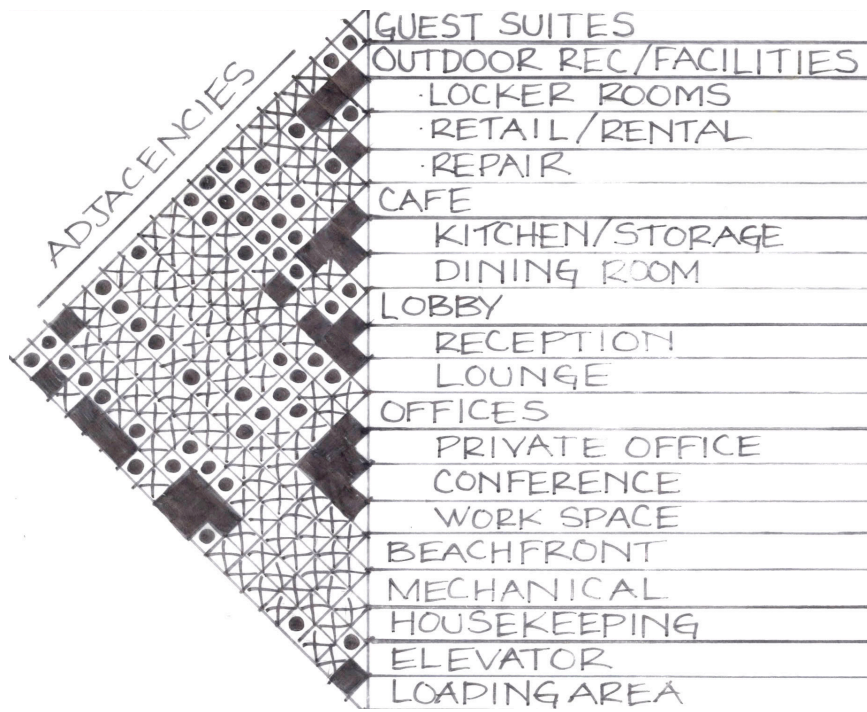 ADJACENCIES
GUEST SUITES
OUTDOOR REC/FACILITIES
·LOCKER ROOMS
·RETAIL/RENTAL
·REPAIR
CAFE
KITCHEN/STORAGE
DINING ROOM
LOBBY
RECEPTION
LOUNGE
OFFICES
PRIVATE OFFICE
CONFERENCE
WORK SPACE
BEACHFRONT
MECHANICAL
HOUSEKEEPING
ELEVATOR
LOADING AREA